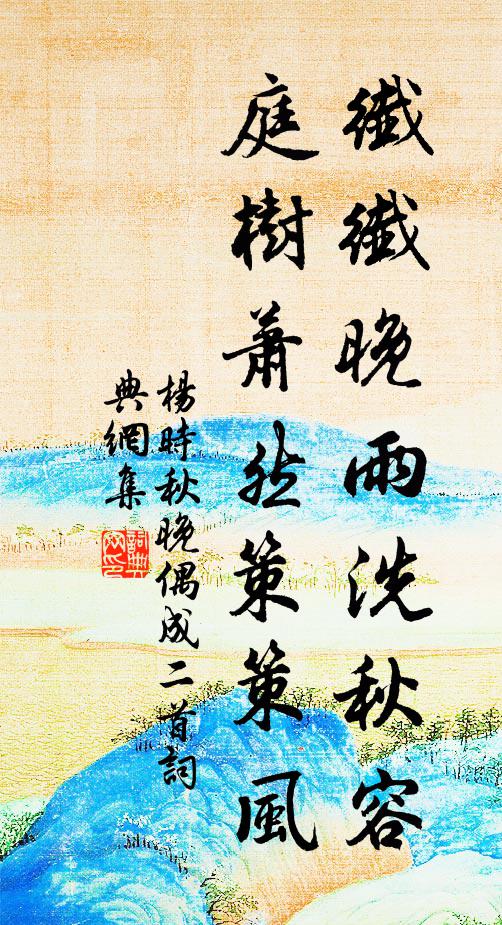 纖纖晚雨洗秋容
庭樹蕭然策策風
楊時秋晚偶成二首詞
典網集
詞典網印